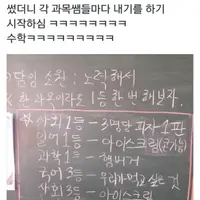 썼더니 각 과목쌤들마다 내기를 하기
시작하심 ㅋㅋㅋㅋㅋㅋㅋㅋ
수학ㅋㅋㅋㅋㅋㅋㅋㅋㅋ
담임 소원 : 노력해서
한 과목이라도 1등 한 번 해보자.
사회 1등 - 3명당 피자 1판
일어 1등 - 아이스크림
과학 1등 - 햄버거
국어 3등 - 우리가 먹고 싶은 것
사회 3등 - 아이스크림